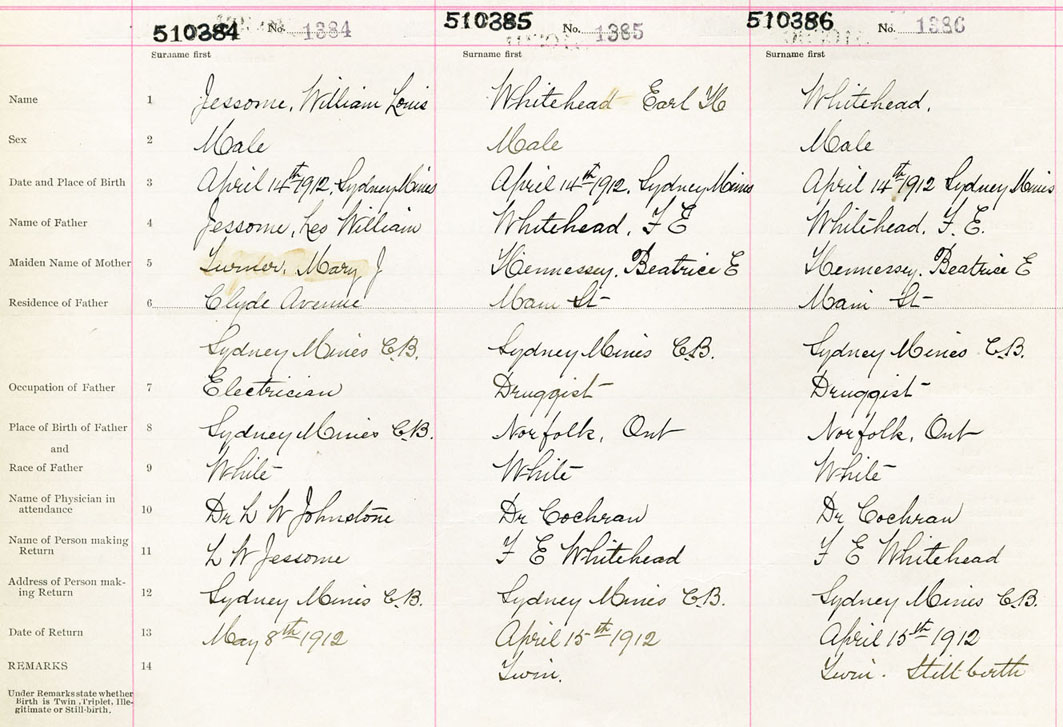 510384 No. 1384 510385 No. 1385 510386 No. 1386
Surname first Surname first Surname first
Name 1 Jessome, William Louis Whitehead Earl H Whitehead.
Sex 2 Male Male Male
Date and Place of Birth 3 April 14th 1912, Sydney Mines April 14th 1912, Sydney Mines April 14th 1912 Sydney Mines
Name of Father 4 Jessome, Leo William Whitehead, F E Whitehead, F. E.
Maiden Name of Mother 5 Turner, Mary J Hennessey, Beatrice E Hennessey, Beatrice E
Residence of Father 6 Clyde Avenue Main St Main St
Sydney Mines C.B. Sydney Mines C.B. Sydney Mines C.B.
Occupation of Father 7 Electrician Druggist Druggist
Place of Birth of Father 8 Sydney Mines C.B. Norfolk, Ont Norfolk, Ont
and
Race of Father 9 White White White
Name of Physician in
attendance 10 Dr L W Johnstone Dr Cochran Dr Cochran
Name of Person making
Return 11 L W Jessome F E Whitehead F E Whitehead
Address of Person mak-
ing Return 12 Sydney Mines C.B. Sydney Mines C.B. Sydney Mines C.B.
Date of Return 13 May 8th 1912 April 15th 1912 April 15th 1912
REMARKS 14 Twin. Twin. Still birth
Under Remarks state whether
Birth is Twin, Triplet, Ille-
gitimate or Still-birth.